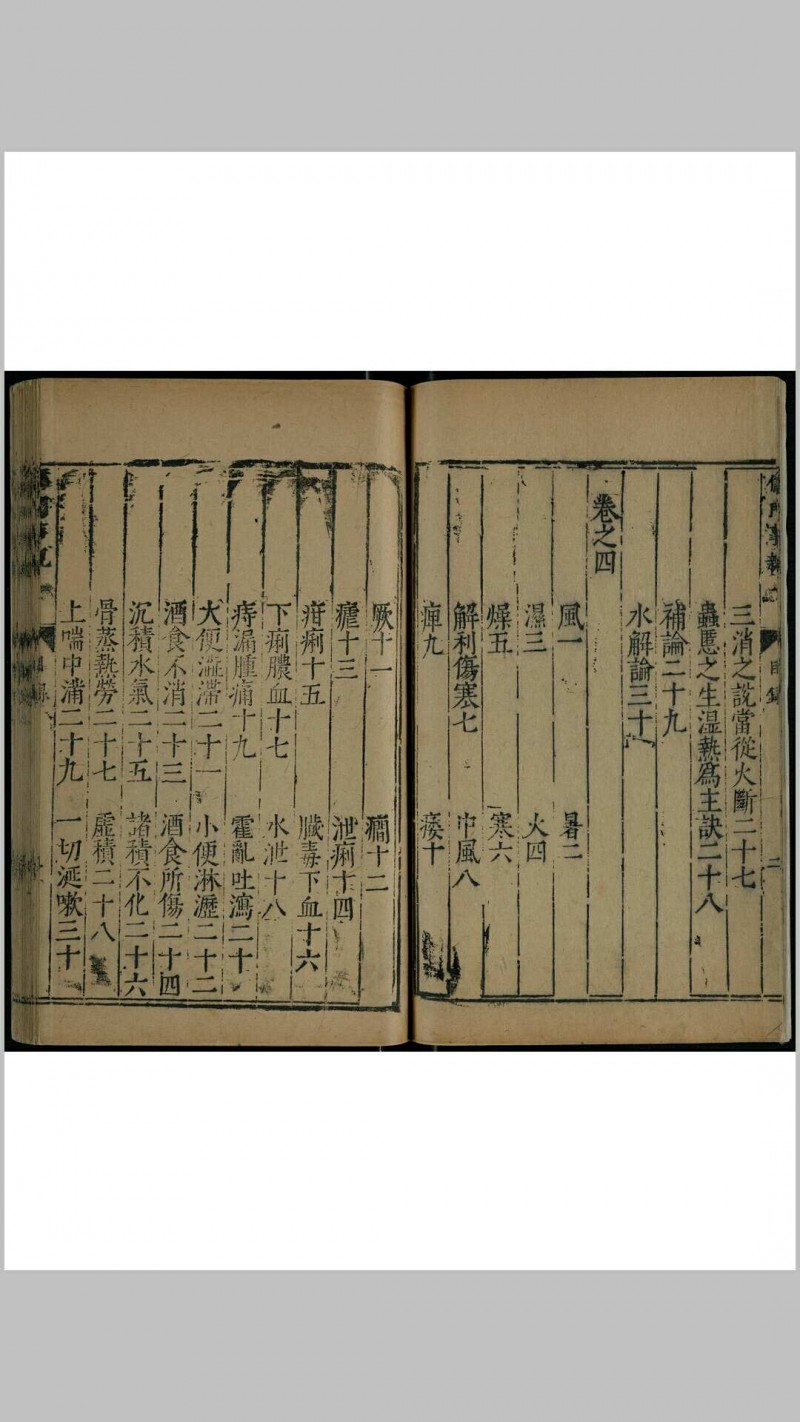 儒門事親 目錄 二
三消之說當從火斷二十七
蟲䘌之生湿熱爲主訣二十八
補論二十九
水解論三十
卷之四
風一 暑二
濕三 火四
燥五 寒六
解利傷寒七 中風八
痺九 痿十
厥十一 癎十二
瘧十三 泄痢十四
疳痢十五 臟毒下血十六
下痢膿血十七 水泄十八
痔漏腫痛十九 霍亂吐瀉二十
大便澁滯二十一 小便淋瀝二十二
酒食不消二十三 酒食所傷二十四
沉積水氣二十五 諸積不化二十六
骨蒸熱勞二十七 虛積二十八
上喘中滿二十九 一切涎嗽三十